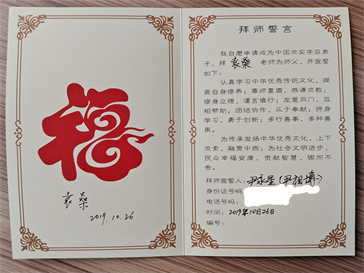 袁燊
2019.10.26
拜师誓言
我自愿申请成为中国欢实学派弟
子，拜 袁燊 老师为师父，并宣誓
如下：
认真学习中华优秀传统文化，提
高自身修养；尊师重道，恭谦求教；
修身立德，谨言慎行；友爱同门，互
相帮助；团结协作，乐于奉献；终身
学习，勇于创新；多行善事，多种善
果。
为传承发扬中华优秀文化，上下
求索，融贯中西；为社会文明进步，
民众幸福安康，贡献智慧，锲而不
舍。
拜师宣誓人：尹永星（尹祖
身份证号码
电话号码：
时间：2019年10月26日
编号：